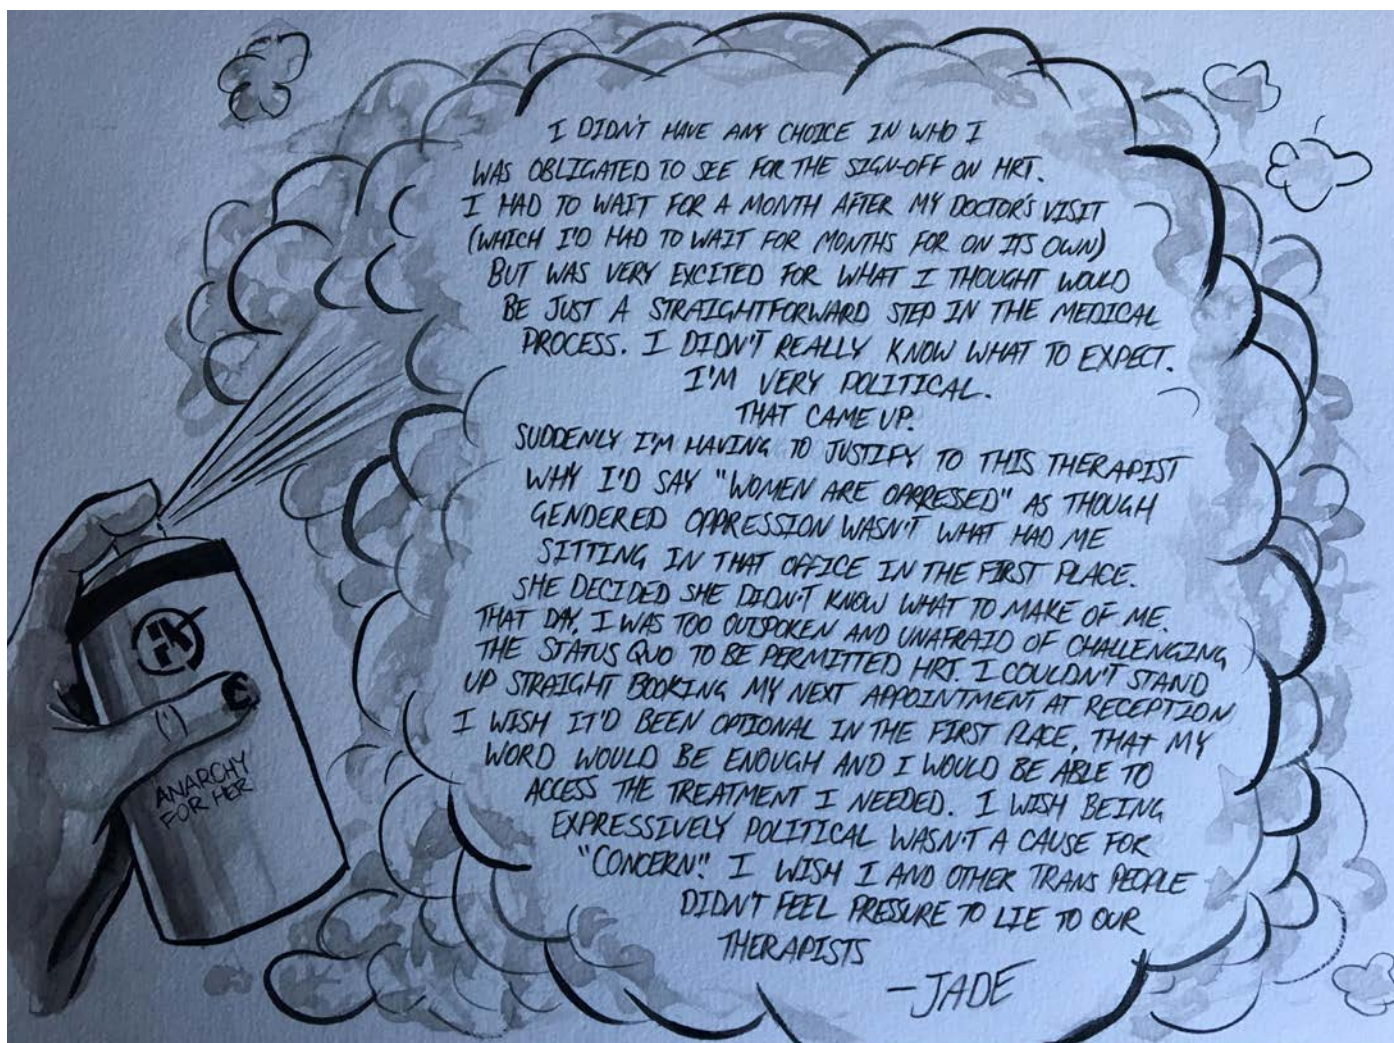 I DIDN'T HAVE ANY CHOICE IN WHO I
WAS OBLIGATED TO SEE FOR THE SIGN-OFF ON HRT.
I HAD TO WAIT FOR A MONTH AFTER MY DOCTOR'S VISIT
(WHICH I'D HAD TO WAIT FOR MONTHS FOR ON ITS OWN)
BUT WAS VERY EXCITED FOR WHAT I THOUGHT WOULD
BE JUST A STRAIGHTFORWARD STEP IN THE MEDICAL
PROCESS. I DIDN'T REALLY KNOW WHAT TO EXPECT.
I'M VERY POLITICAL.
THAT CAME UP.
SUDDENLY I'M HAVING TO JUSTIFY TO THIS THERAPIST
WHY I'D SAY "WOMEN ARE OPPRESSED" AS THOUGH
GENDERED OPPRESSION WASN'T WHAT HAD ME
SITTING IN THAT OFFICE IN THE FIRST PLACE.
SHE DECIDED SHE DIDN'T KNOW WHAT TO MAKE OF ME.
THAT DAY, I WAS TOO OUTSPOKEN AND UNAFRAID OF CHALLENGING
THE STATUS QUO TO BE PERMITTED HRT. I COULDN'T STAND
UP STRAIGHT BOOKING MY NEXT APPOINTMENT AT RECEPTION
I WISH IT'D BEEN OPTIONAL IN THE FIRST PLACE, THAT MY
WORD WOULD BE ENOUGH AND I WOULD BE ABLE TO
ACCESS THE TREATMENT I NEEDED. I WISH BEING
EXPRESSIVELY POLITICAL WASN'T A CAUSE FOR
"CONCERN". I WISH I AND OTHER TRANS PEOPLE
DIDN'T FEEL PRESSURE TO LIE TO OUR
THERAPISTS
—JADE
ANARCHY
FOR HER